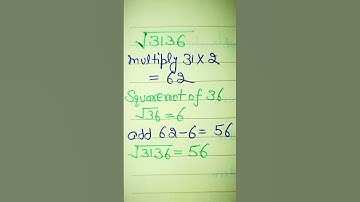 √3136
multiply 31×2
= 62
Squareroot of 36
√36 = 6
add 62-6= 56
√3136 = 56